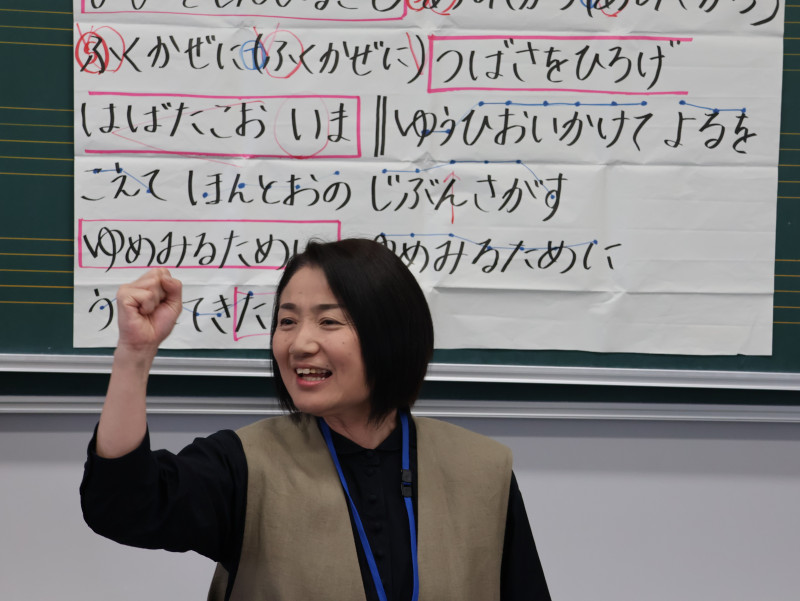 ふくかぜに(ふくかぜに)つばさをひろげ
はばたこお いま‖ゆうひおいかけて よるを
こえて ほんとおの じぶんさがす
ゆめみるために ゆめみるために
う てきた